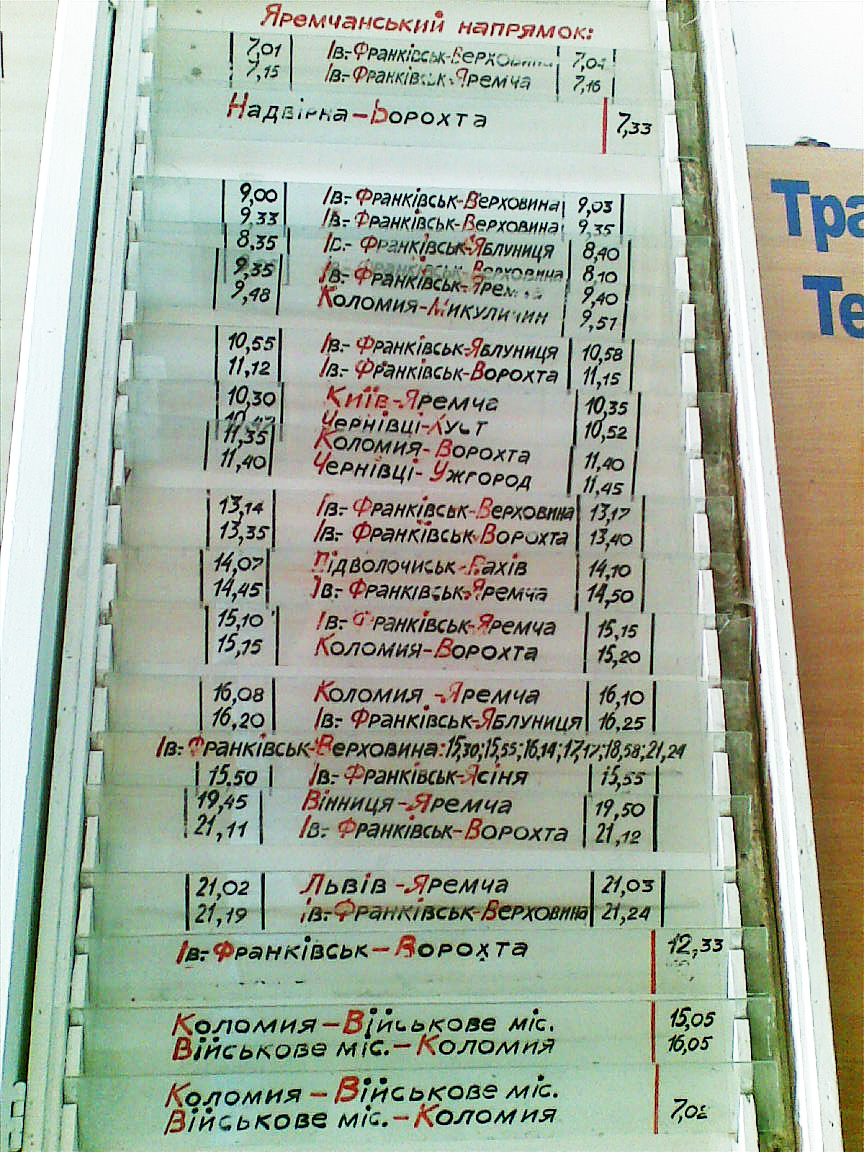 Яремчанський напрямок:
7,01 Ів-Франківськ-Верховина 7,04
7,15 Ів-Франківськ-Яремча 7,16
Надвірна-Ворохта 7,33
9,00 Ів-Франківськ-Верховина 9,03
9,33 Ів-Франківськ-Верховина 9,35
8,35 Ів-Франківськ-Яблуниця 8,40
Ів-Франківськ-Верховина 8,10
9,35 Ів-Франківськ-Яремча 9,40
9,48 Коломия-Микуличин 9,57
10,55 Ів-Франківськ-Яблуниця 10,58
11,12 Ів-Франківськ-Ворохта 11,15
10,30 Київ-Яремча 10,35
10,47 Чернівці-Хуст 10,52
11,35 Коломия-Ворохта 11,40
11,40 Чернівці-Ужгород 11,45
13,14 Ів-Франківськ-Верховина 13,17
13,35 Ів-Франківськ-Ворохта 13,40
14,07 Підволочиськ-Рахів 14,10
14,45 Ів-Франківськ-Яремча 14,50
15,10 Ів-Франківськ-Яремча 15,15
15,15 Коломия-Ворохта 15,20
16,08 Коломия-Яремча 16,10
16,20 Ів-Франківськ-Яблуниця 16,25
Ів-Франківськ-Верховина:15,30;15,55;16,14;17,17;18,58;21,24
15,50 Ів-Франківськ-Ясіня 15,55
19,45 Вінниця-Яремча 19,50
21,11 Ів-Франківськ-Ворохта 21,12
21,02 Львів-Яремча 21,03
21,19 Ів-Франківськ-Верховина 21,24
Ів-Франківськ-Ворохта 12,33
Коломия-Військове міс. 15,05
Військове міс.-Коломия 16,05
Коломия-Військове міс.
Військове міс.-Коломия 7,02
Тра
Те